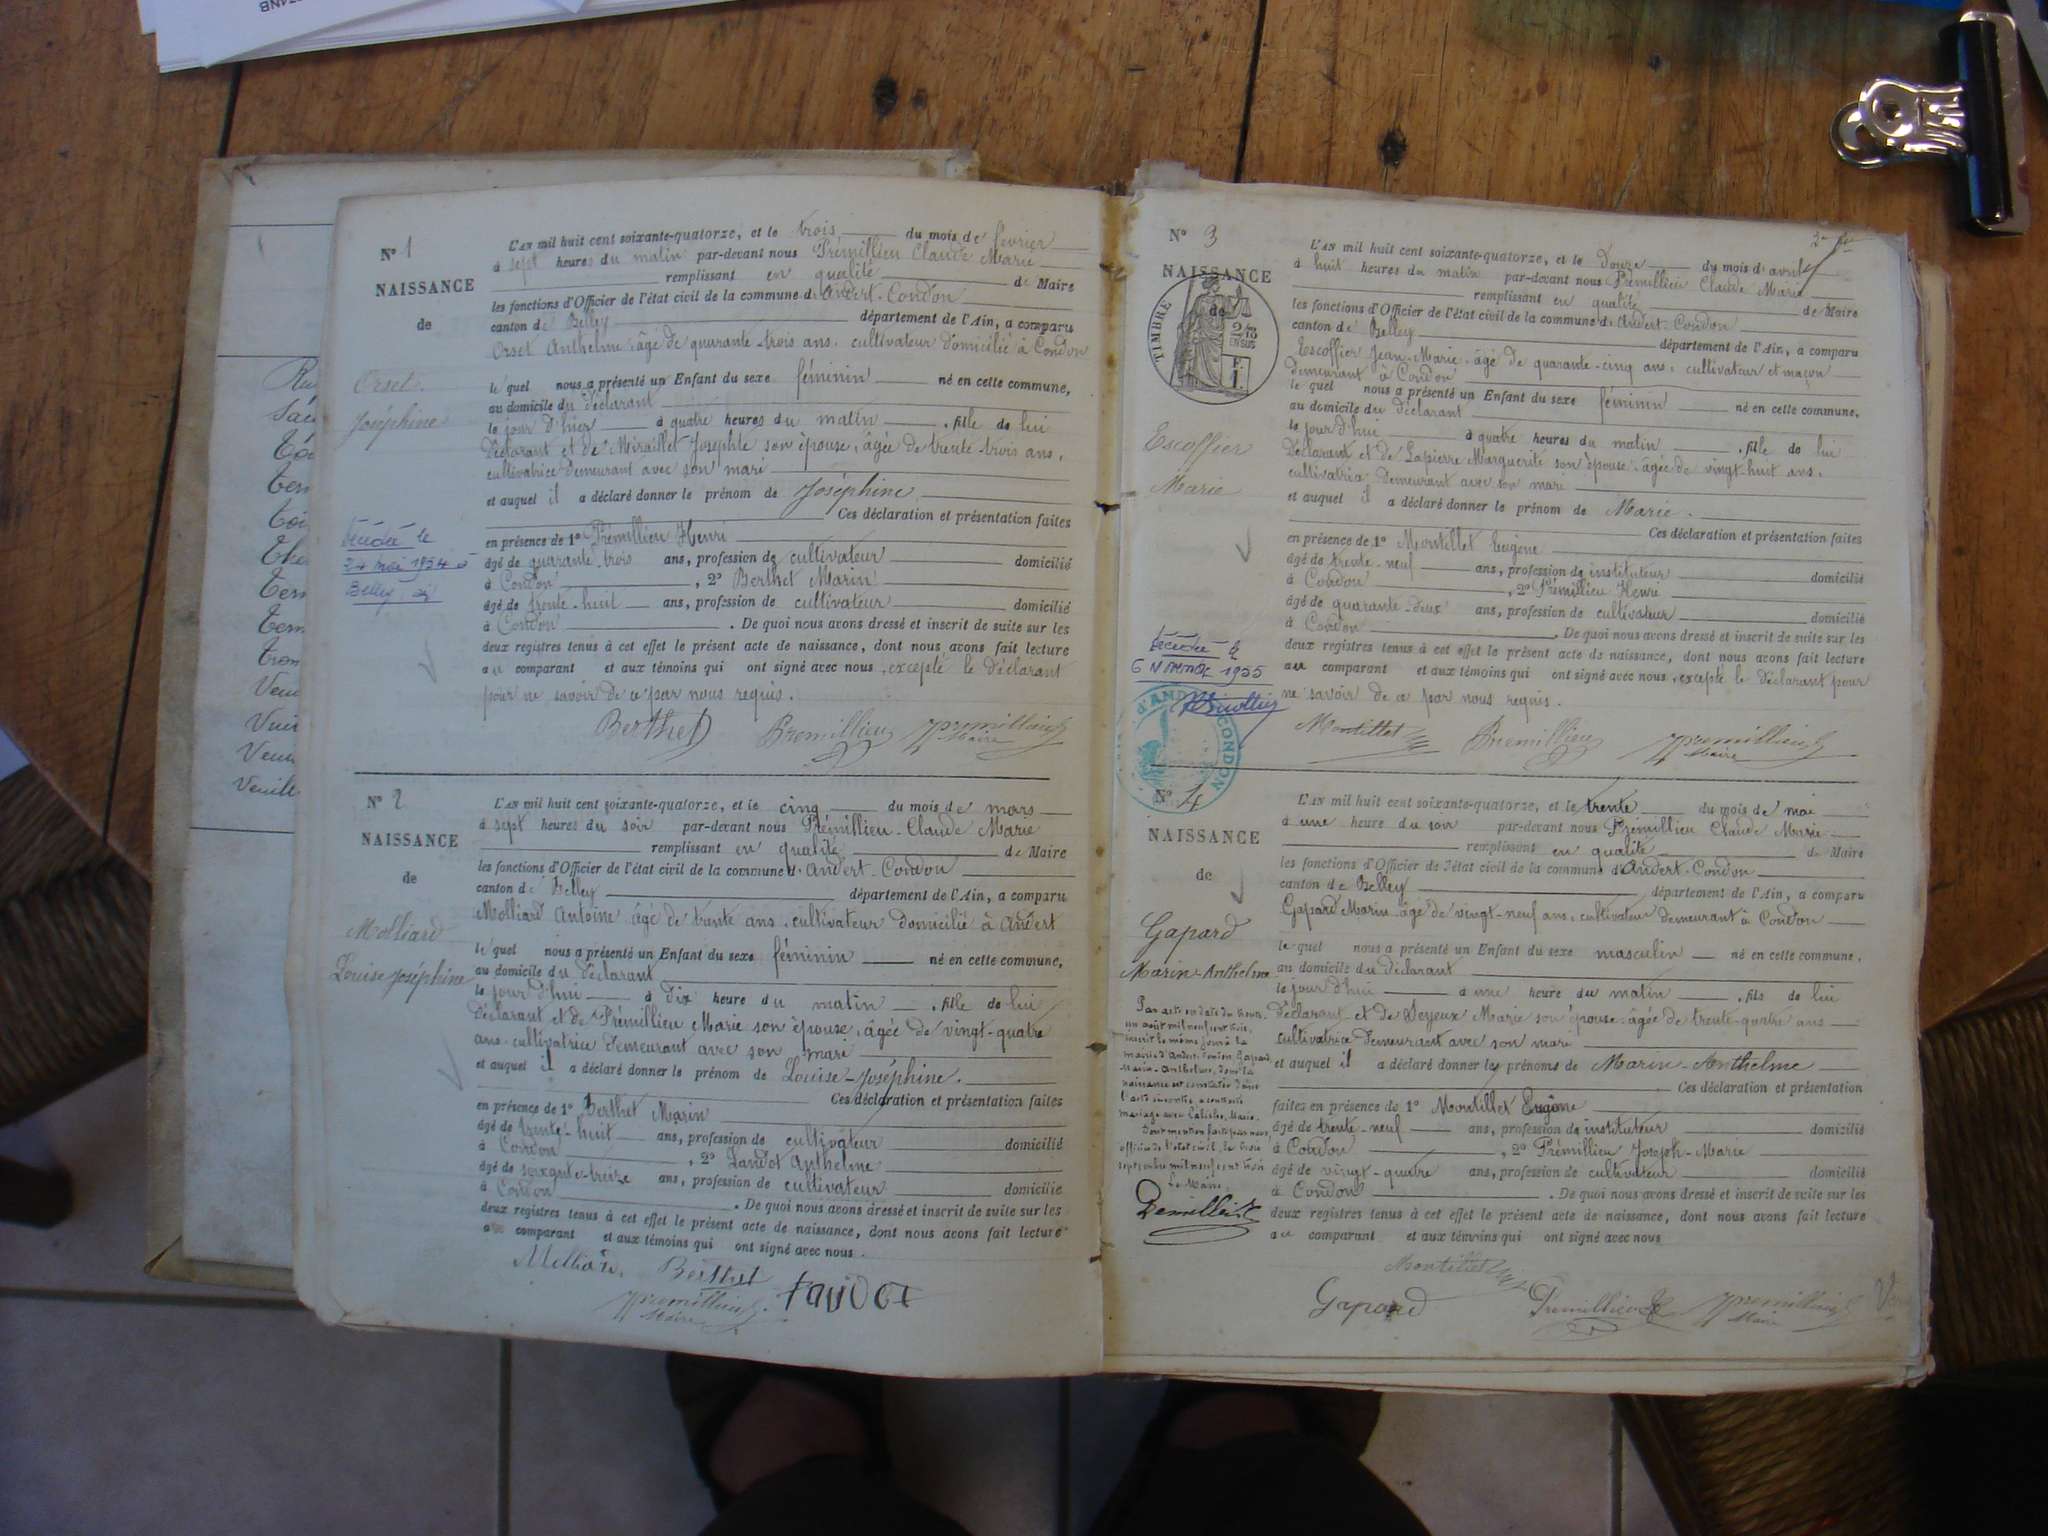 N° 1
NAISSANCE
de
Orset
Joséphine
Décédée le
24 mai 1954 à
Belley
L'AN mil huit cent soixante-quatorze, et le trois du mois de février
à sept heures du matin par-devant nous Prémillieu Claude Marie
remplissant en qualité de Maire
les fonctions d'Officier de l'état civil de la commune d'Andert-Condon
canton de Belley département de l'Ain, a comparu
Orset Anthelme âgé de quarante-trois ans, cultivateur domicilié à Condon
lequel nous a présenté un Enfant du sexe féminin né en cette commune,
au domicile du déclarant
le jour d'hier à quatre heures du matin, fille de lui
déclarant et de Miraillet Josephte son épouse, âgée de trente trois ans,
cultivatrice demeurant avec son mari
et auquel il a déclaré donner le prénom de Joséphine
Ces déclaration et présentation faites
en présence de 1° Prémillieu Henri
âgé de quarante-trois ans, profession de cultivateur domicilié
à Condon, 2° Berthet Marin
âgé de trente-huit ans, profession de cultivateur domicilié
à Condon. De quoi nous avons dressé et inscrit de suite sur les
deux registres tenus à cet effet le présent acte de naissance, dont nous avons fait lecture
au comparant et aux témoins qui ont signé avec nous, excepté le déclarant
pour ne savoir de ce par nous requis.
Berthet Premillieu Premillieu
Maire
N° 2
NAISSANCE
de
Molliard
Louise Joséphine
L'AN mil huit cent soixante-quatorze, et le cinq du mois de mars
à sept heures du soir par-devant nous Prémillieu Claude Marie
remplissant en qualité de Maire
les fonctions d'Officier de l'état civil de la commune d'Andert-Condon
canton de Belley département de l'Ain, a comparu
Molliard Antoine âgé de trente ans, cultivateur domicilié à Andert
lequel nous a présenté un Enfant du sexe féminin né en cette commune,
au domicile du déclarant
le jour d'hui à dix heure du matin, fille de lui
déclarant et de Prémillieu Marie son épouse, âgée de vingt-quatre
ans, cultivatrice demeurant avec son mari
et auquel il a déclaré donner le prénom de Louise-Joséphine.
Ces déclaration et présentation faites
en présence de 1° Berthet Marin
âgé de trente-huit ans, profession de cultivateur domicilié
à Condon, 2° Landot Anthelme
âgé de soixante-treize ans, profession de cultivateur domicilié
à Condon. De quoi nous avons dressé et inscrit de suite sur les
deux registres tenus à cet effet le présent acte de naissance, dont nous avons fait lecture
au comparant et aux témoins qui ont signé avec nous.
Molliard Berthet Landot
Premillieu
Maire
N° 3
NAISSANCE
de
TIMBRE
Escoffier
Marie
Décédée le
6 NOVEMBRE 1955
CONDON
L'AN mil huit cent soixante-quatorze, et le douze du mois d'avril
à huit heures du matin par-devant nous Prémillieu Claude Marie
remplissant en qualité de Maire
les fonctions d'Officier de l'état civil de la commune d'Andert-Condon
canton de Belley département de l'Ain, a comparu
Escoffier Jean-Marie âgé de quarante-cinq ans, cultivateur et maçon
demeurant à Condon
lequel nous a présenté un Enfant du sexe féminin né en cette commune,
au domicile du déclarant
le jour d'hui à quatre heures du matin, fille de lui
déclarant et de Lapierre Marguerite son épouse, âgée de vingt-huit ans,
cultivatrice demeurant avec son mari
et auquel il a déclaré donner le prénom de Marie.
Ces déclaration et présentation faites
en présence de 1° Montillet Eugène
âgé de trente-neuf ans, profession de instituteur domicilié
à Condon, 2° Prémillieu Henri
âgé de quarante-deux ans, profession de cultivateur domicilié
à Condon. De quoi nous avons dressé et inscrit de suite sur les
deux registres tenus à cet effet le présent acte de naissance, dont nous avons fait lecture
au comparant et aux témoins qui ont signé avec nous, excepté le déclarant pour
ne savoir de ce par nous requis.
Montillet Premillieu Premillieu
Maire
N° 4
NAISSANCE
de
Gapard
Marin-Anthelme
Par acte en date du trente
un août mil neuf cent trois,
inscrit le même jour à la
mairie d'Andert-Condon, Gapard
Marin-Anthelme, dont la
naissance est constatée dans
l'acte ci-contre, a contracté
mariage avec Marie.
Dont mention faite par nous,
officier de l'état civil, le trois
septembre mil neuf cent trois
Le Maire,
L'AN mil huit cent soixante-quatorze, et le trente du mois de mai
à une heure du soir par-devant nous Prémillieu Claude Marie
remplissant en qualité de Maire
les fonctions d'Officier de l'état civil de la commune d'Andert-Condon
canton de Belley département de l'Ain, a comparu
Gapard Marin âgé de vingt-neuf ans, cultivateur demeurant à Condon
lequel nous a présenté un Enfant du sexe masculin né en cette commune,
au domicile du déclarant
le jour d'hui à une heure du matin, fils de lui
déclarant et de Deyeux Marie son épouse âgée de trente-quatre ans
cultivatrice demeurant avec son mari
et auquel il a déclaré donner les prénoms de Marin-Anthelme
Ces déclaration et présentation
faites en présence de 1° Montillet Eugène
âgé de trente-neuf ans, profession de instituteur domicilié
à Condon, 2° Prémillieu Joseph-Marie
âgé de vingt-quatre ans, profession de cultivateur domicilié
à Condon. De quoi nous avons dressé et inscrit de suite sur les
deux registres tenus à cet effet le présent acte de naissance, dont nous avons fait lecture
au comparant et aux témoins qui ont signé avec nous
Montillet
Gapard Premillieu Premillieu
Maire